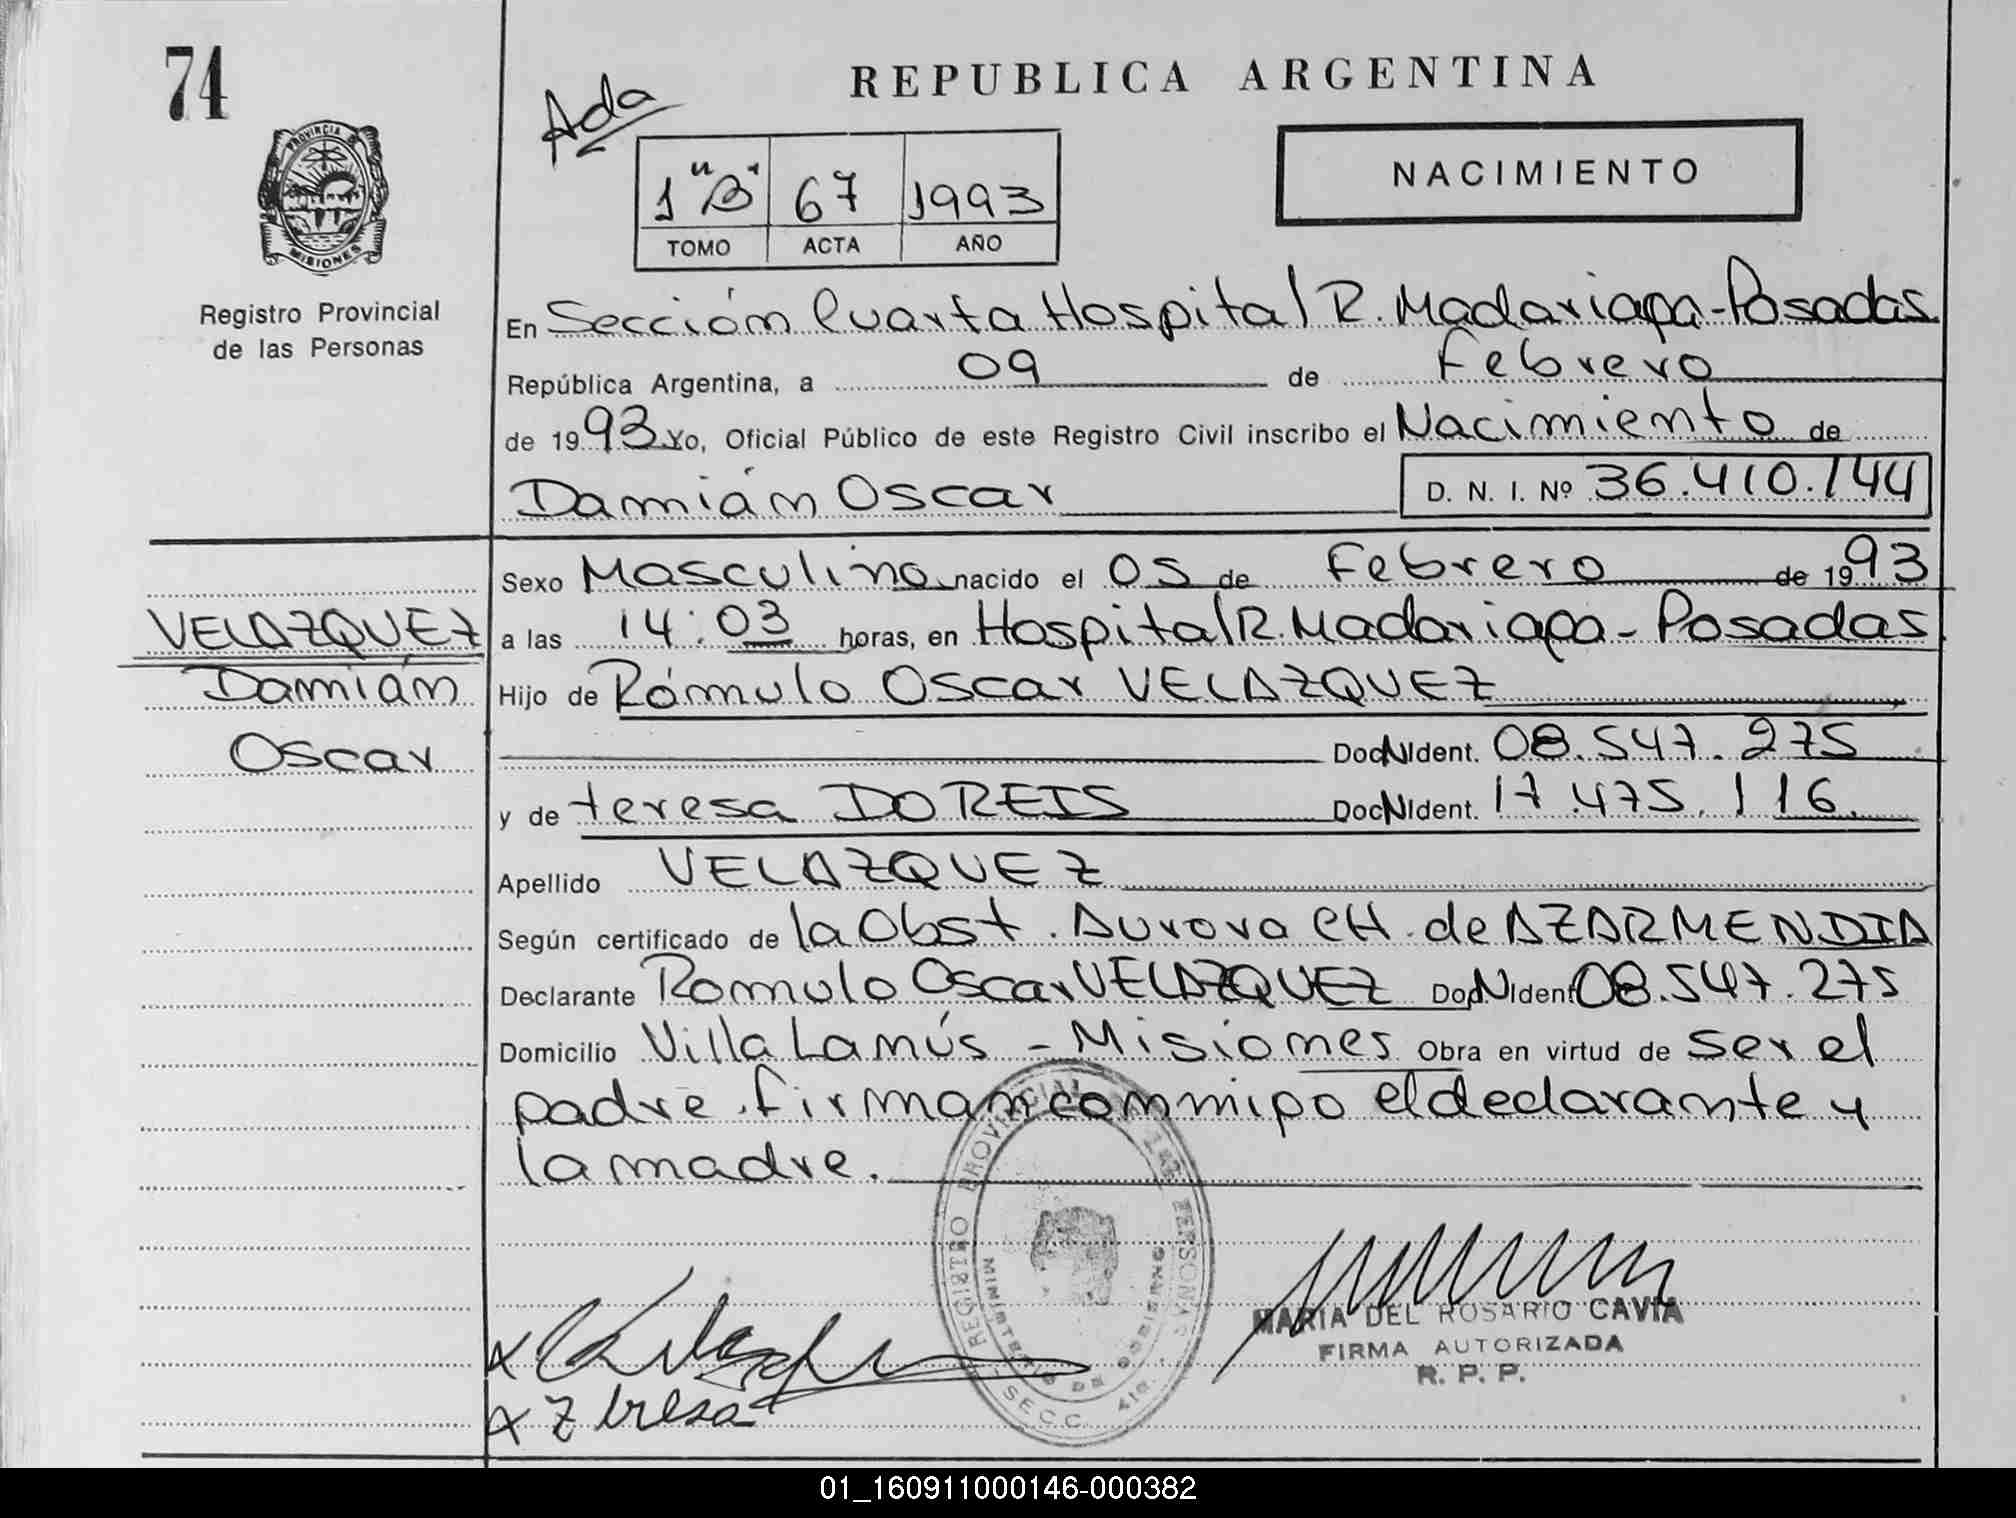 74
REPUBLICA ARGENTINA
Ada
NACIMIENTO
1 "B" 67 1993
TOMO ACTA AÑO
PROVINCIA DE
MISIONES
Registro Provincial
de las Personas
En Sección Cuarta Hospital R. Madariaga - Posadas
República Argentina, a 09 de Febrero
de 1993 Yo, Oficial Público de este Registro Civil inscribo el Nacimiento de
Damián Oscar D. N. I. Nº 36.410.144
Sexo Masculino nacido el 05 de Febrero de 1993
VELAZQUEZ
Damián
Oscar
a las 14:03 horas, en Hospital R. Madariaga - Posadas
Hijo de Rómulo Oscar VELAZQUEZ
Doc N Ident. 08.547.275
y de teresa DO REIS Doc N Ident. 17.475.116.
Apellido VELAZQUEZ
Según certificado de la Obst. Aurora CH. de AZARMENDIA
Declarante Romulo Oscar VELAZQUEZ Doc N Ident 08.547.275
Domicilio Villa Lanús - Misiones Obra en virtud de ser el
padre. firman conmigo el declarante y
la madre.
REGISTRO PROVINCIAL DE LAS PERSONAS
MINISTERIO DE GOBIERNO
SECC. 4ta.
MARIA DEL ROSARIO CAVIA
FIRMA AUTORIZADA
R. P. P.
x
x teresa
01_160911000146-000382